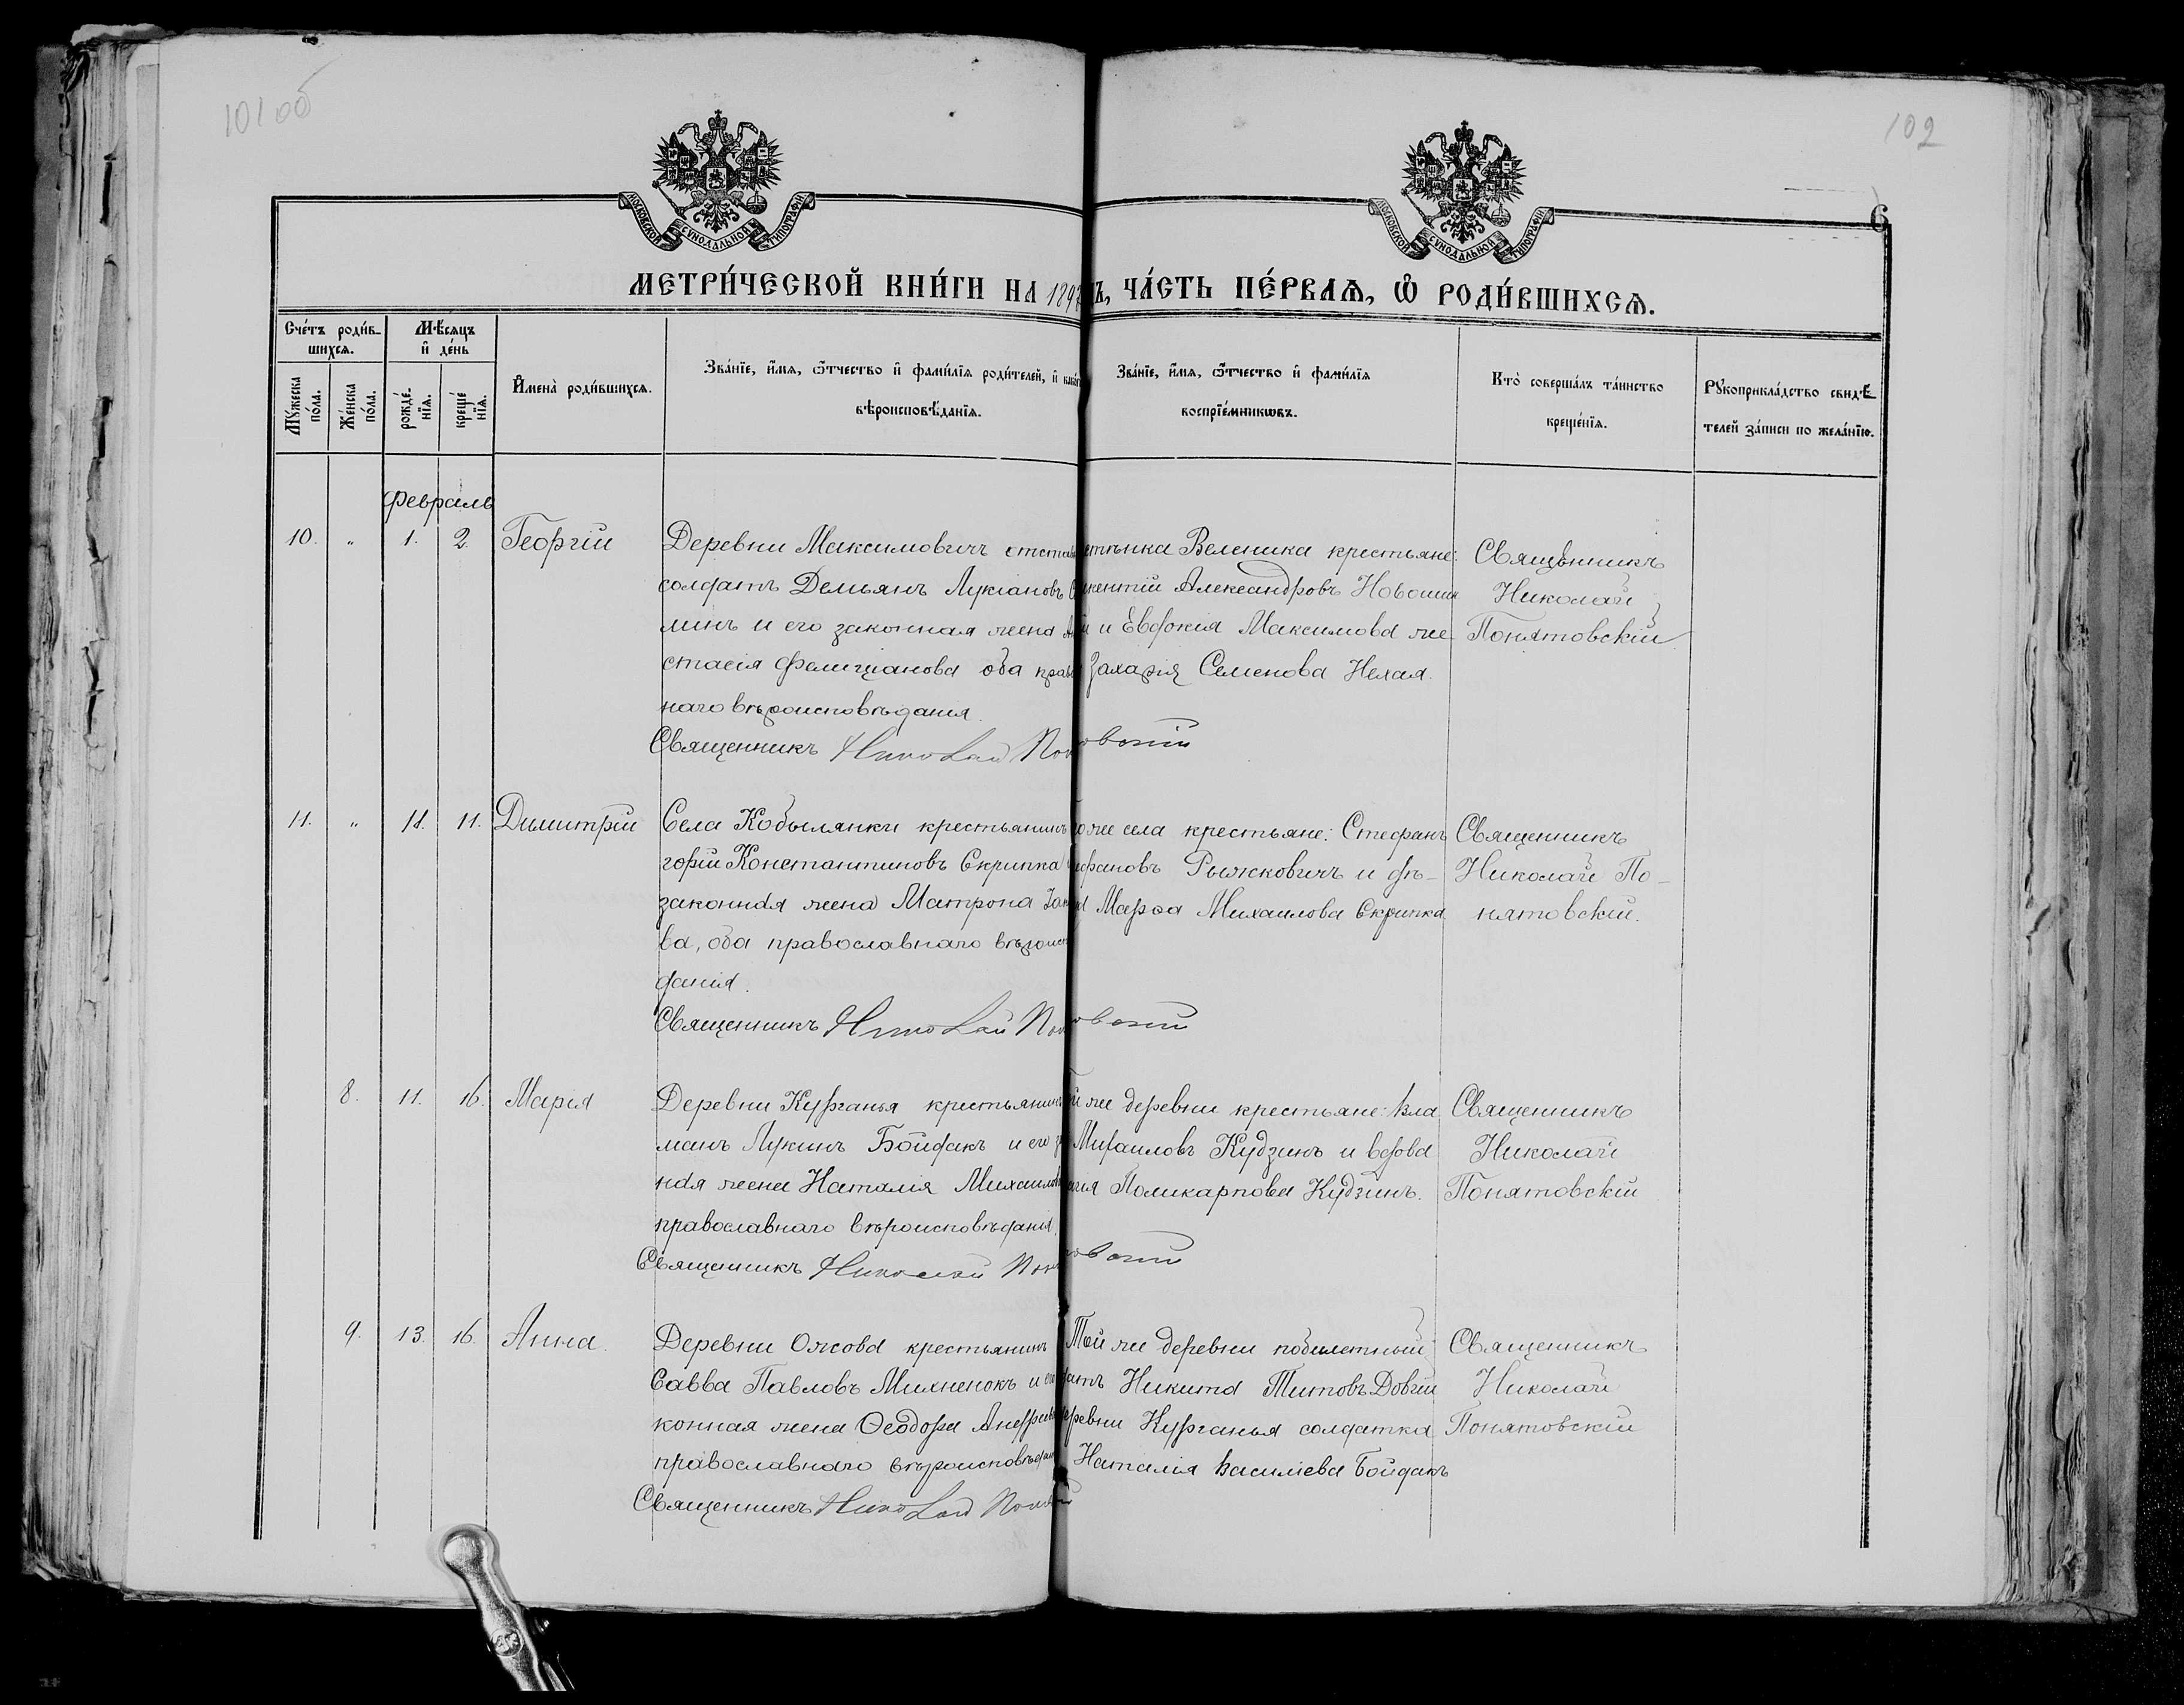 101 об
102
6
МОСКОВСКОЙ СѴНОДАЛЬНОЙ ТИПОГРАФІИ
МОСКОВСКОЙ СѴНОДАЛЬНОЙ ТИПОГРАФІИ
МЕТРИ́ЧЕСКОЙ КНИ́ГИ НА 189 Ъ, ЧА́СТЬ ПЕ́РВАѦ, Ѽ РОДИ́ВШИХСѦ.
Сче́тъ роди́в-
шихсѧ.
Мѣ́сѧцъ
и҆ де́нь
Мꙋ́жеска
по́ла.
Же́нска
по́ла.
рожде́-
нїѧ.
креще́
нїѧ.
И҆мена̀ роди́вшихсѧ.
Зва́нїе, и҆́мѧ, ѻ҆́тчество и҆ фами́лїѧ роди́телей, и҆
вѣроисповѣ́данїѧ.
Зва́нїе, и҆́мѧ, ѻ҆́тчество и҆ фами́лїѧ
воспрїе́мникѡвъ.
Кто̀ соверша́лъ та́инство
креще́нїѧ.
Рꙋкоприкла́дство свидѣ́-
телей за́писи по жела́нїю.
Февраль
10. " 1. 2. Георгій
Деревни Максимовичъ
солдатъ Демьянъ Лукіановъ
линъ и его законная жена
стасія Фелиціанова оба
наго вѣроисповѣданія.
Священникъ Николай
Веленика крестьяне:
Александровъ
и Евдокія Максимова же
Захарія Семенова Нехая.
Священникъ
Николай
Понятовскій
11. " 11. 11. Димитрій
Села Кобылянки крестьянинъ
горій Константиновъ Скрипка
законная жена Матрона
ва, оба православнаго
данія.
Священникъ Николай
же села крестьяне: Стефанъ
Рыжковичъ и дѣ-
Марѳа Михаилова Скрипка
Священникъ
Николай По-
нятовскій.
8. 11. 16. Марія
Деревни Курганья крестьянинъ
манъ Лукинъ Бойдакъ и его
ная жена Наталія
православнаго вѣроисповѣданія.
Священникъ Николай
же деревни крестьяне: Вла
Михаиловъ Кудзинъ и вдова
Поликарпова Кудзинъ.
Священникъ
Николай
Понятовскій
9. 13. 16. Анна.
Деревни Ожсова крестьянинъ
Савва Павловъ Михненокъ и
конная жена Ѳеодора
православнаго
Священникъ Николай
Той же деревни побилетный
Никита Титовъ Довгій
Курганья солдатка
Наталія Василіева Бойдакъ
Священникъ
Николай
Понятовскій